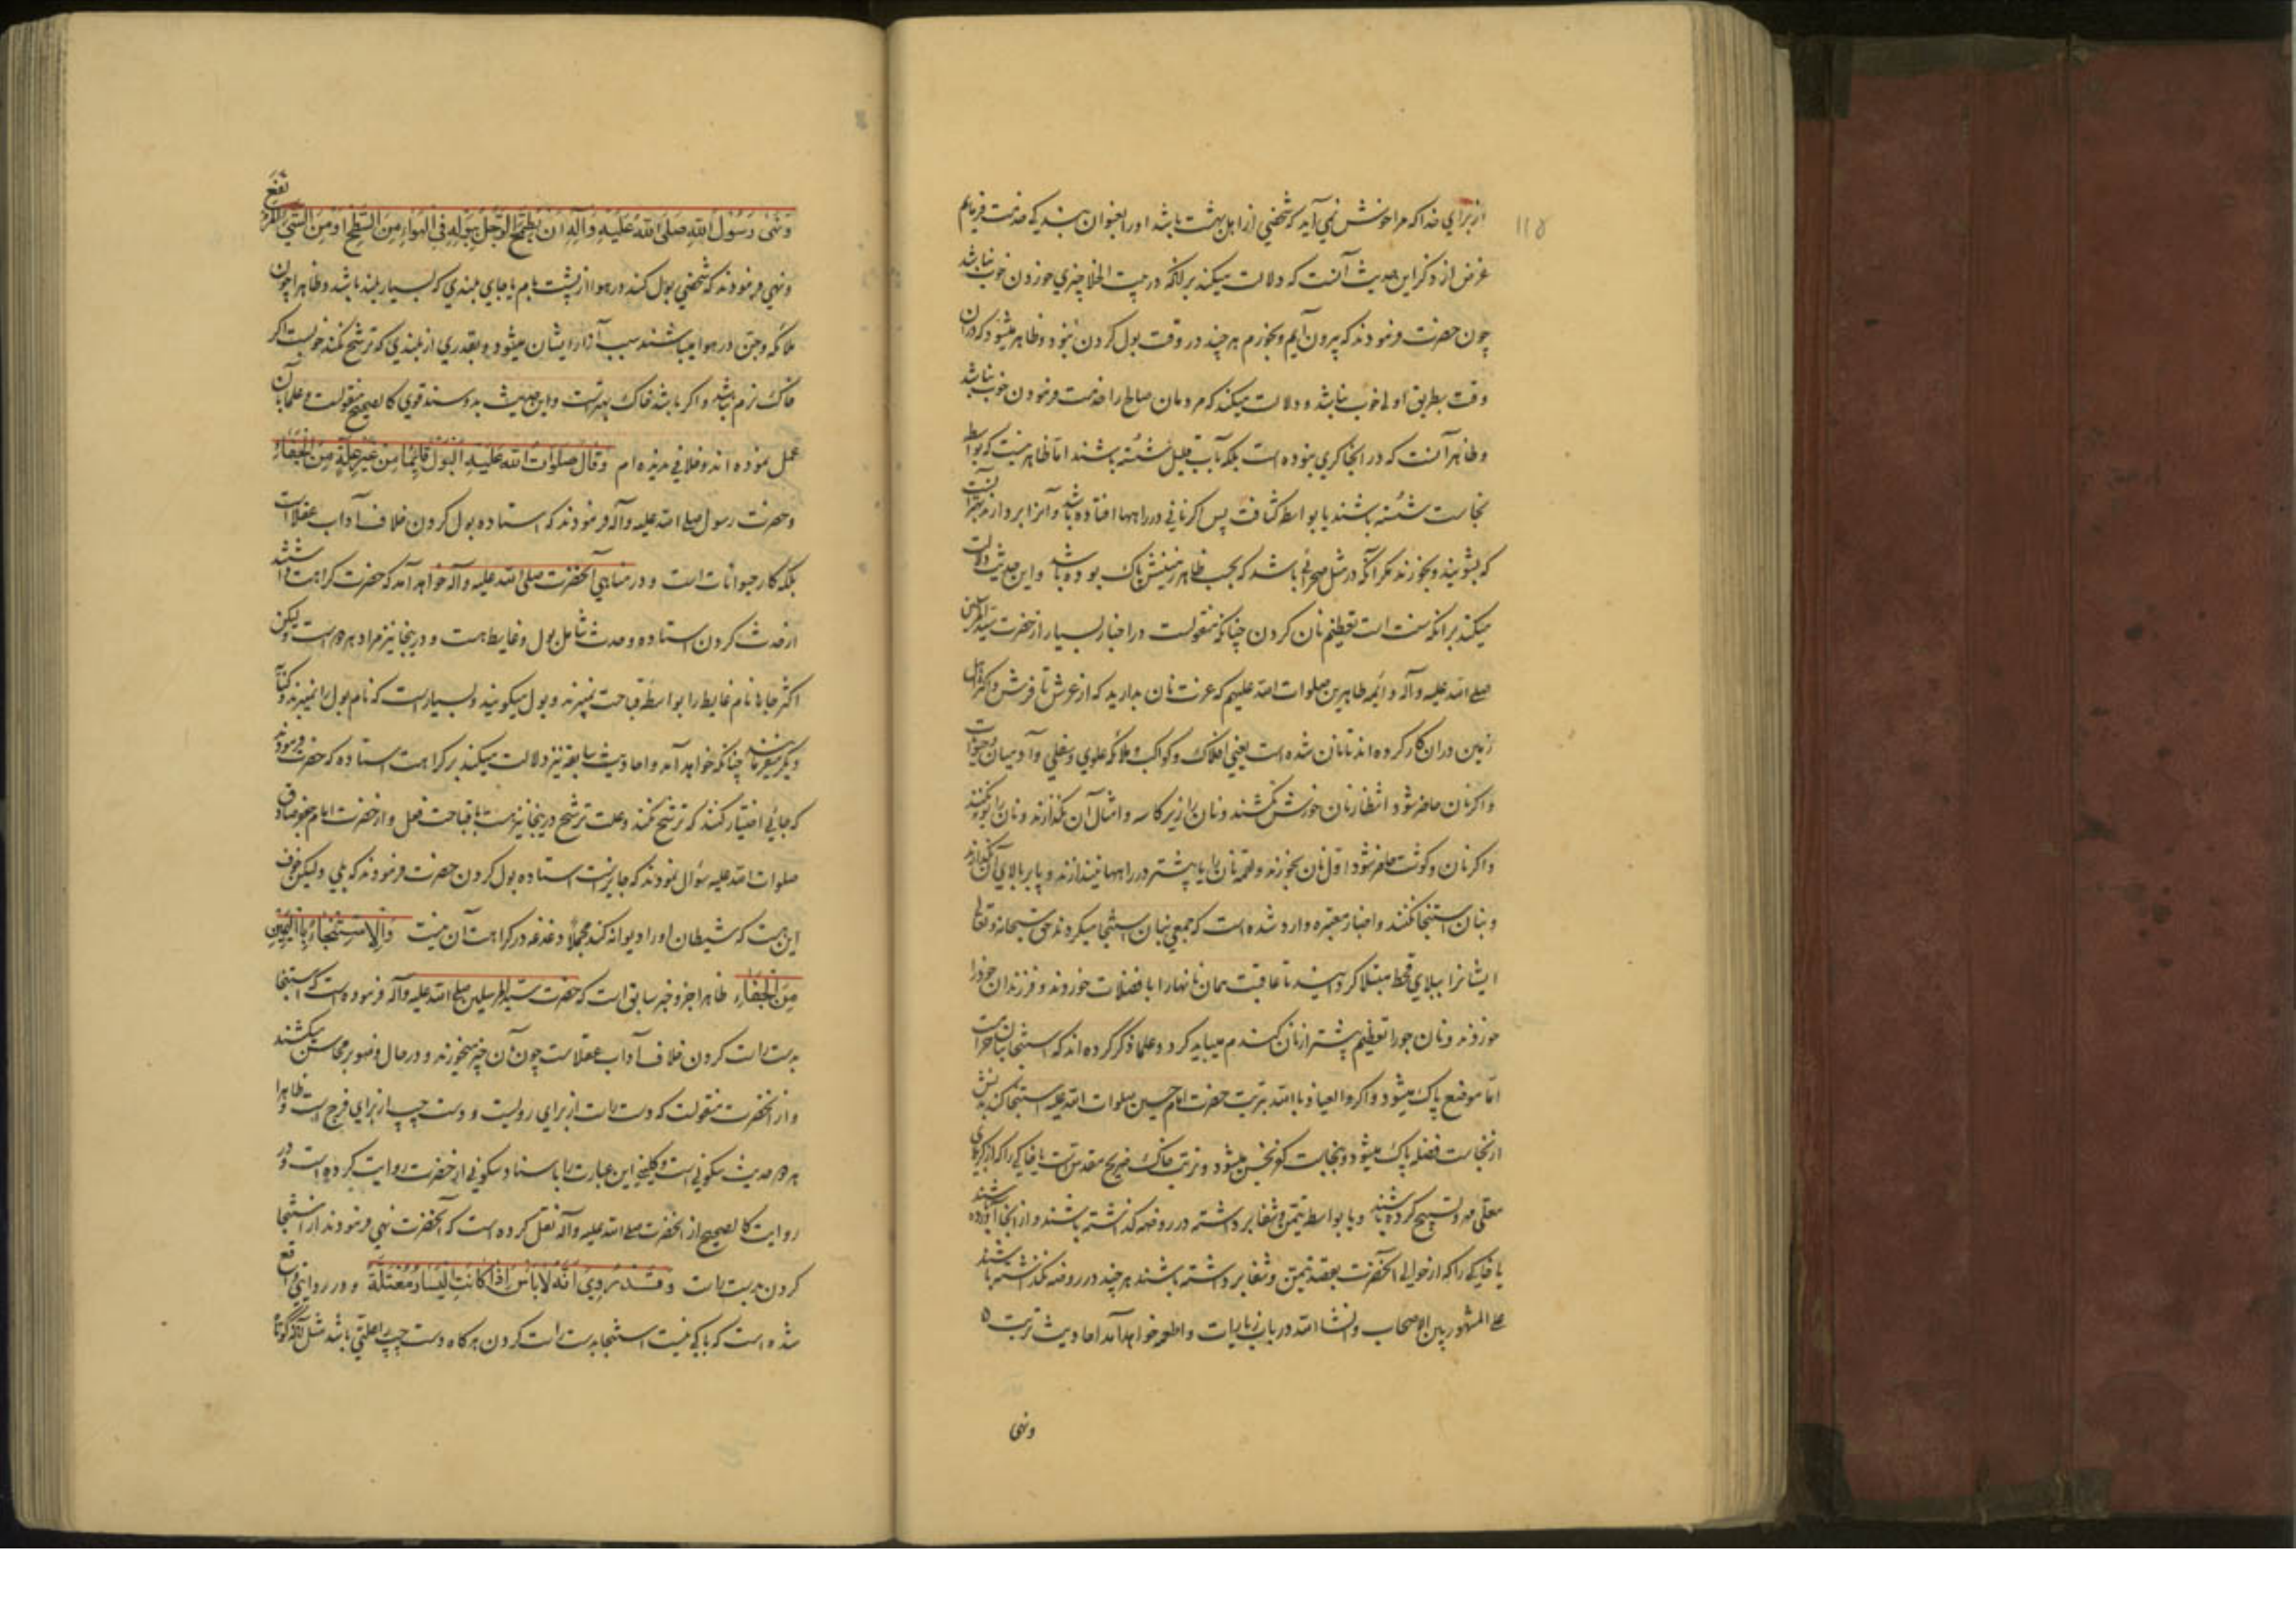 ۱۱۵
از برای خدا که مرا خوش نمی آید که شخصی از اهل بهشت باشد او را بعنوان بندگی خدمت فرمایم
غرض از ذکر این حدیث آنست که دلالت میکند بر آنکه در بیت الخلا چیزی خوردن خوب نباشد
چون حضرت فرمودند که بیرون آیم و بخورم هر چند در وقت بول کردن نبود و ظاهر میشود که در آن
وقت بطریق اولی خوب نباشد و دلالت میکند که مردمان صالح را خدمت فرمودن خوب نباشد
و ظاهر آنست که در آنجا کری نبوده است بلکه بآب قلیل شسته باشند اما ظاهر نیست که بواسطه
نجاست شسته باشند یا بواسطه کثافت پس اگر نانی در راهها افتاده باشد و آنرا بردارند بهتر آنست
که بشویند و بخورند مگر آنکه در مثل صحرائی باشد که بحسب ظاهر زمینش پاک بوده باشد و این حدیث دلالت
میکند بر آنکه سنت است تعظیم نان کردن چنانکه منقولست در اخبار بسیار از حضرت سید المرسلین
صلی الله علیه وآله و ائمه طاهرین صلوات الله علیهم که عزت نان بدارید که از عرش تا فرش و اکثر اهل
زمین در آن کار کرده اند تا نان شده است یعنی افلاک و کواکب و ملائکه علوی و سفلی و آدمیان و حیوانات
و اگر نان حاضر شود انتظار نان خورش نکشند و نان را زیر کاسه و امثال آن نگذارند و نان را بو نکنند
و اگر نان و گوشت حاضر شود اول نان بخورند و لقمه نان را یا بیشتر در راهها نیندازند و پا بر بالای آن نگذارند
و بنان استنجا نکنند و اخبار معتبره وارد شده است که جمعی بنان استنجا میکردند حق سبحانه و تعالی
ایشانرا ببلای قحط مبتلا گردانید تا عاقبت همان نانها را با فضلات خوردند و فرزندان خود را
خوردند و نان جو را تعظیم بیشتر از نان گندم میباید کرد و علما ذکر کرده اند که استنجا بنان حرامست
اما موضع پاک میشود و اگر والعیاذ بالله بتربت حضرت امام حسین صلوات الله علیه استنجا کند بدنش
از نجاست فضله پاک میشود و بنجاست کفر نجس میشود و تربت خاک ضریح مقدس است یا خاکی را که از کربلای
معلی مهر و تسبیح کرده باشند و یا بواسطه تیمن و شفا برداشته در روضه گذاشته باشند و از آنجا آورده باشند
یا خاکی را که از حوالی آنحضرت بقصد تیمن و شفا برداشته باشند هر چند در روضه نگذاشته باشند
علی المشهور بین الاصحاب و انشاء الله در باب زیارات و اطعمه خواهد آمد احادیث تربت ه
ونهی
وَنَهی رَسُولُ اللهِ صَلَّی اللهُ عَلَیْهِ وَآلِهِ اَنْ یُطَمِّحَ الرَّجُلُ بِبَوْلِهِ فِی الهَواءِ مِنَ السَّطْحِ اَوْ مِنَ الشَّیءِ المُرْتَفِعِ
ونهی فرمودند که شخصی بول کند در هوا از پشت بام یا جای بلندی که بسیار بلند باشد و ظاهرا چون
ملائکه و جن در هوا میباشند سبب آزار ایشان میشود و بقدری از بلندی که ترشح نکند خوبست اگر
خاک نرم نباشد و اگر باشد خاک بهتر است و این حدیث بدو سند قوی کالصحیح منقولست و علما بآن
عمل نموده اند و خلافی ندیده ام وَقَالَ صَلَوَاتُ اللهِ عَلَیْهِ البَوْلُ قَائِمًا مِنْ غَیْرِ عِلَّةٍ مِنَ الجَفَاءِ
و حضرت رسول صلی الله علیه وآله فرمودند که استاده بول کردن خلاف آداب عقلاست
بلکه کار حیوانات است و در مناهی آنحضرت صلی الله علیه وآله خواهد آمد که حضرت کراهت داشتند
از حدث کردن استاده و حدث شامل بول و غایط هست و در ینجا نیز مراد هر دو است و لیکن
اکثر جاها نام غایط را بواسطه قباحت نمیبرند و بول میگویند و بسیار است که نام بول را نمیبرند و کنایة
دیگر میفرمایند چنانکه خواهد آمد و احادیث سابقه نیز دلالت میکند بر کراهت استاده که حضرت فرمودند
که جائی اختیار کنند که ترشح نکند و علت ترشح در ینجا نیز هست با قباحت فعل و از حضرت امام جعفر صادق
صلوات الله علیه سؤال نمودند که جایز است استاده بول کردن حضرت فرمودند که بلی و لیکن خوف
این هست که شیطان او را دیوانه کند مجملا دغدغه در کراهت آن نیست وَالِاسْتِنْجَاءُ بِالْیَمِینِ
مِنَ الجَفَاءِ ظاهرا جزو خبر سابق است که حضرت سید المرسلین صلی الله علیه وآله فرموده است که استنجا
بدست راست کردن خلاف آداب عقلاست چون بآن چیز میخورند و در حال وضو بر محاسن میکشند
و از آنحضرت منقولست که دست راست از برای رویست و دست چپ از برای فرج است و ظاهرا
هر دو حدیث سکونی است و کلینی این عبارت را باسناد سکونی از آنحضرت روایت کرده است و در
روایت کالصحیح از آنحضرت صلی الله علیه وآله نقل کرده است که آنحضرت نهی فرمودند از استنجا
کردن بدست راست وَقَدْ رُوِیَ اَنَّهُ لَا بَأْسَ اِذَا کَانَتِ الیَسَارُ مُعْتَلَّةً و در روایتی واقع
شده است که باکی نیست استنجا بدست راست کردن هر گاه دست چپ را علتی باشد مثل آنکه کوتاه